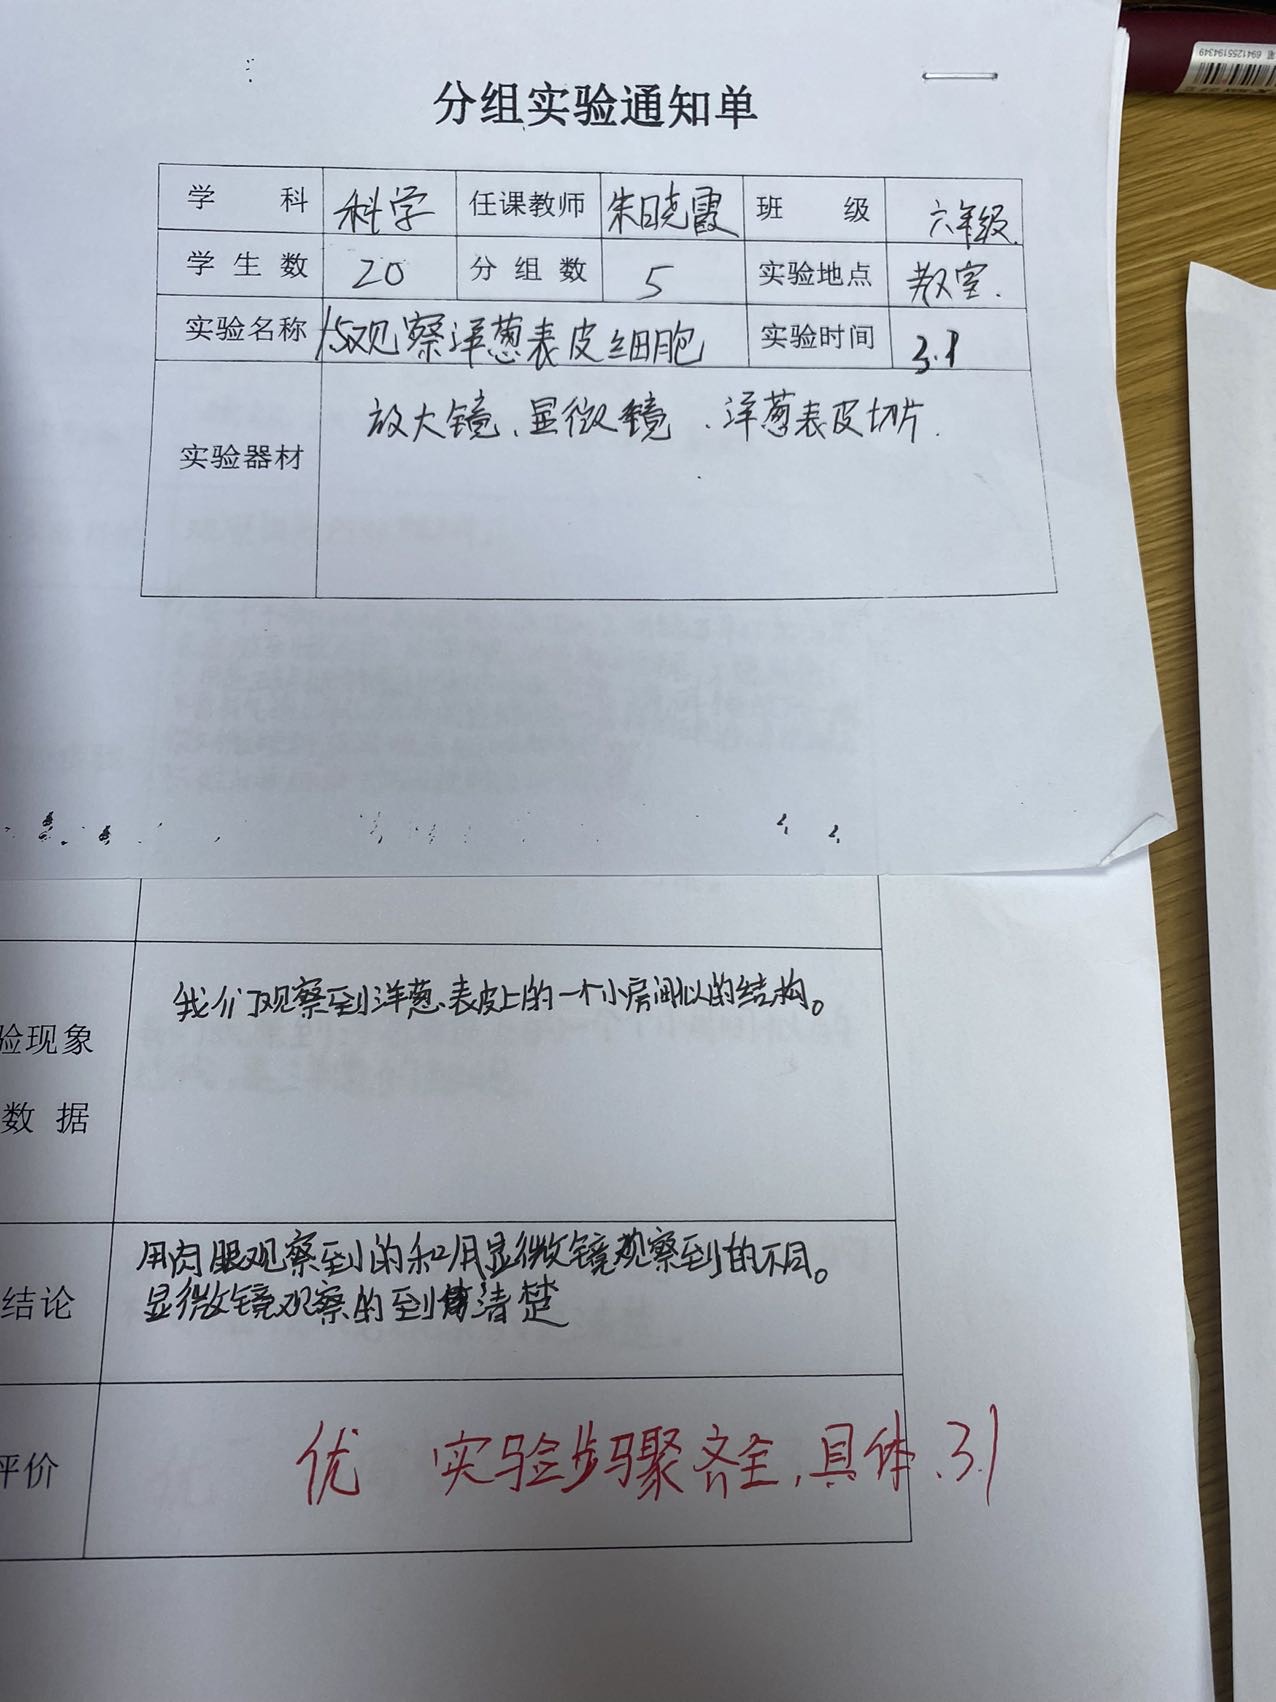 6941255194349
分组实验通知单
学 科 科学 任课教师 朱晓霞 班 级 六年级.
学生数 20 分组数 5 实验地点 教室.
实验名称 15观察洋葱表皮细胞 实验时间 3.1
实验器材 放大镜、显微镜、洋葱表皮切片.
我们观察到洋葱表皮上的一个小房间似的结构。
验现象
数 据
用肉眼观察到的和用显微镜观察到的不同。
结论
显微镜观察的到 清楚
评价 优 实验步骤齐全,具体、3.1